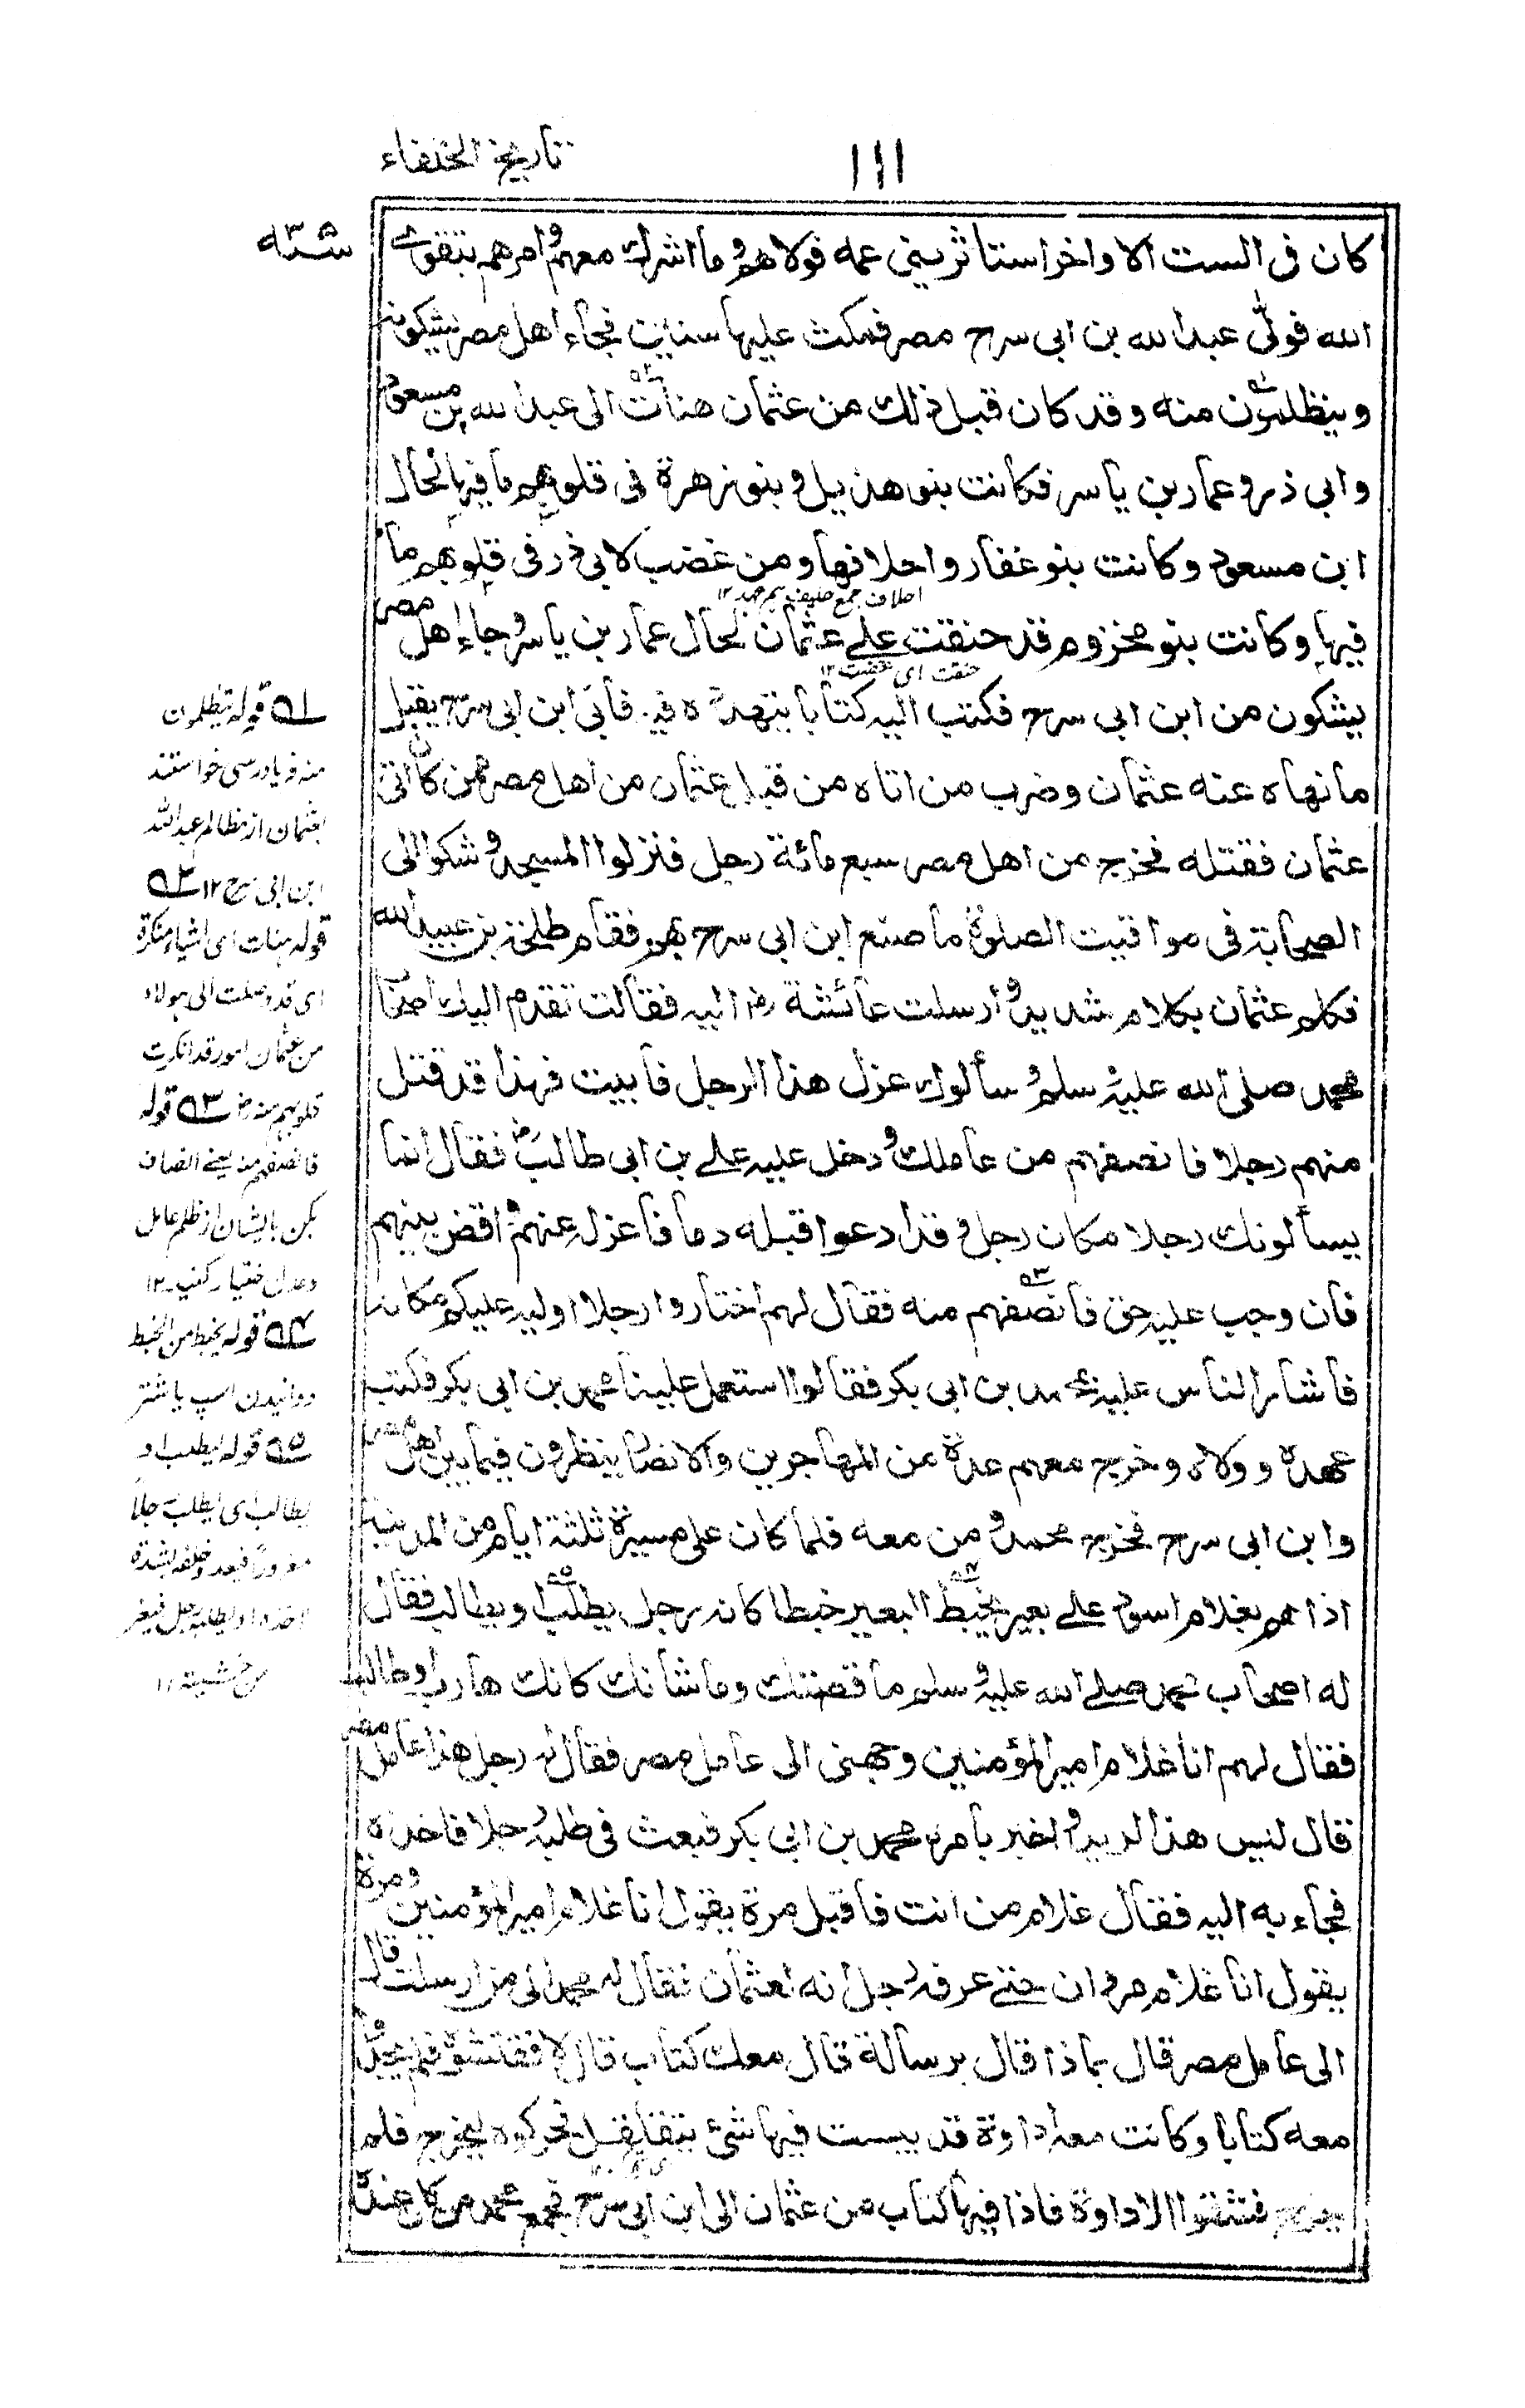 ١١١
تاريخ الخلفاء
كان فى الست الاواخر استاثر بنى عمه فولاهم وما اشرك معهم وامرهم بتقوى
الله فولّى عبدالله بن ابى سرح مصر فمكث عليها سنين فجاء اهل مصر يشكونه
ويتظلمون منه وقد كان قبل ذلك من عثمان هنات الى عبدالله بن مسعود
وابى ذر وعمار بن ياسر فكانت بنو هذيل وبنو زهرة فى قلوبهم ما فيها لحال
ابن مسعود وكانت بنو غفار واحلافها ومن غضب لابى ذر فى قلوبهم ما
احلاف جمع حليف
فيها وكانت بنو مخزوم قد حنقت على عثمان لحال عمار بن ياسر وجاء اهل مصر
حنقت اى غضبت ١٢
يشكون من ابن ابى سرح فكتب اليه كتابا يتهدده فيه فأبى ابن ابى سرح يقبل
ما نهاه عنه عثمان وضرب من اتاه من قبل عثمان من اهل مصر ممن كان اتى
عثمان فقتله فخرج من اهل مصر سبع مائة رجل فنزلوا المسجد وشكوا الى
الصحابة فى مواقيت الصلوة ما صنع ابن ابى سرح بهم فقام طلحة بن عبيد الله
فكلم عثمان بكلام شديد وارسلت عائشة رض اليه فقالت تقدم اليك اصحاب
محمد صلى الله عليه وسلم وسألوك عزل هذا الرجل فابيت فهذا قد قتل
منهم رجلا فانصفهم من عاملك ودخل عليه على بن ابى طالب رض فقال انما
يسألونك رجلا مكان رجل وقد ادعوا قبله دما فاعزله عنهم واقض بينهم
فان وجب عليه حق فانصفهم منه فقال لهم اختاروا رجلا اوليه عليكم مكانه
فاشار الناس عليه بمحمد بن ابى بكر فقالوا استعمل علينا محمد بن ابى بكر فكتب
عهده وولاه وخرج معهم عدة من المهاجرين والانصار ينظرون فيما بين اهل مصر
وابن ابى سرح فخرج محمد ومن معه فلما كان على مسيرة ثلثة ايام من المدينة
اذا هم بغلام اسود على بعير يخبط البعير خبطا كانه رجل يطلب او يطالب فقال
له اصحاب محمد صلى الله عليه وسلم ما قصتك وما شأنك كانك هارب او طالب
فقال لهم انا غلام امير المؤمنين وجهنى الى عامل مصر فقال له رجل هذا عامل مصر
قال ليس هذا اريد واخبر بامره محمد بن ابى بكر فبعث فى طلبه رجلا فاخذه
فجاء به اليه فقال غلام من انت فاقبل مرة يقول انا غلام امير المؤمنين ومرة
يقول انا غلام مروان حتى عرفه رجل انه لعثمان فقال له محمد الى من ارسلت قال
الى عامل مصر قال بماذا قال برسالة قال معك كتاب قال لا ففتشوه فلم يجدوا
معه كتابا وكانت معه اداوة قد يبست فيها شئ يتقلقل فحركوه ليخرج فلم
يخرج فشقوا الاداوة فاذا فيها كتاب من عثمان الى ابن ابى سرح فجمع محمد من كان عنده
١ قوله يتظلمون
منه فريادرسى خواستند
بعثمان از مظالم عبدالله
ابن ابى سرح ١٢ ٢
قوله هنات اى اشياء منكرة
اى قد وصلت الى هولاء
من عثمان امور قد انكرت
قلوبهم منه ٣ قوله
فانصفهم منه يعنى انصاف
بكن بايشان از ظلم عامل
وعدل اختيار كنيد ١٢
٤ قوله يخبط من الخبط
دوانيدن اسپ يا شتر
٥ قوله يطلب او
يطالب اى يطلب رجلا